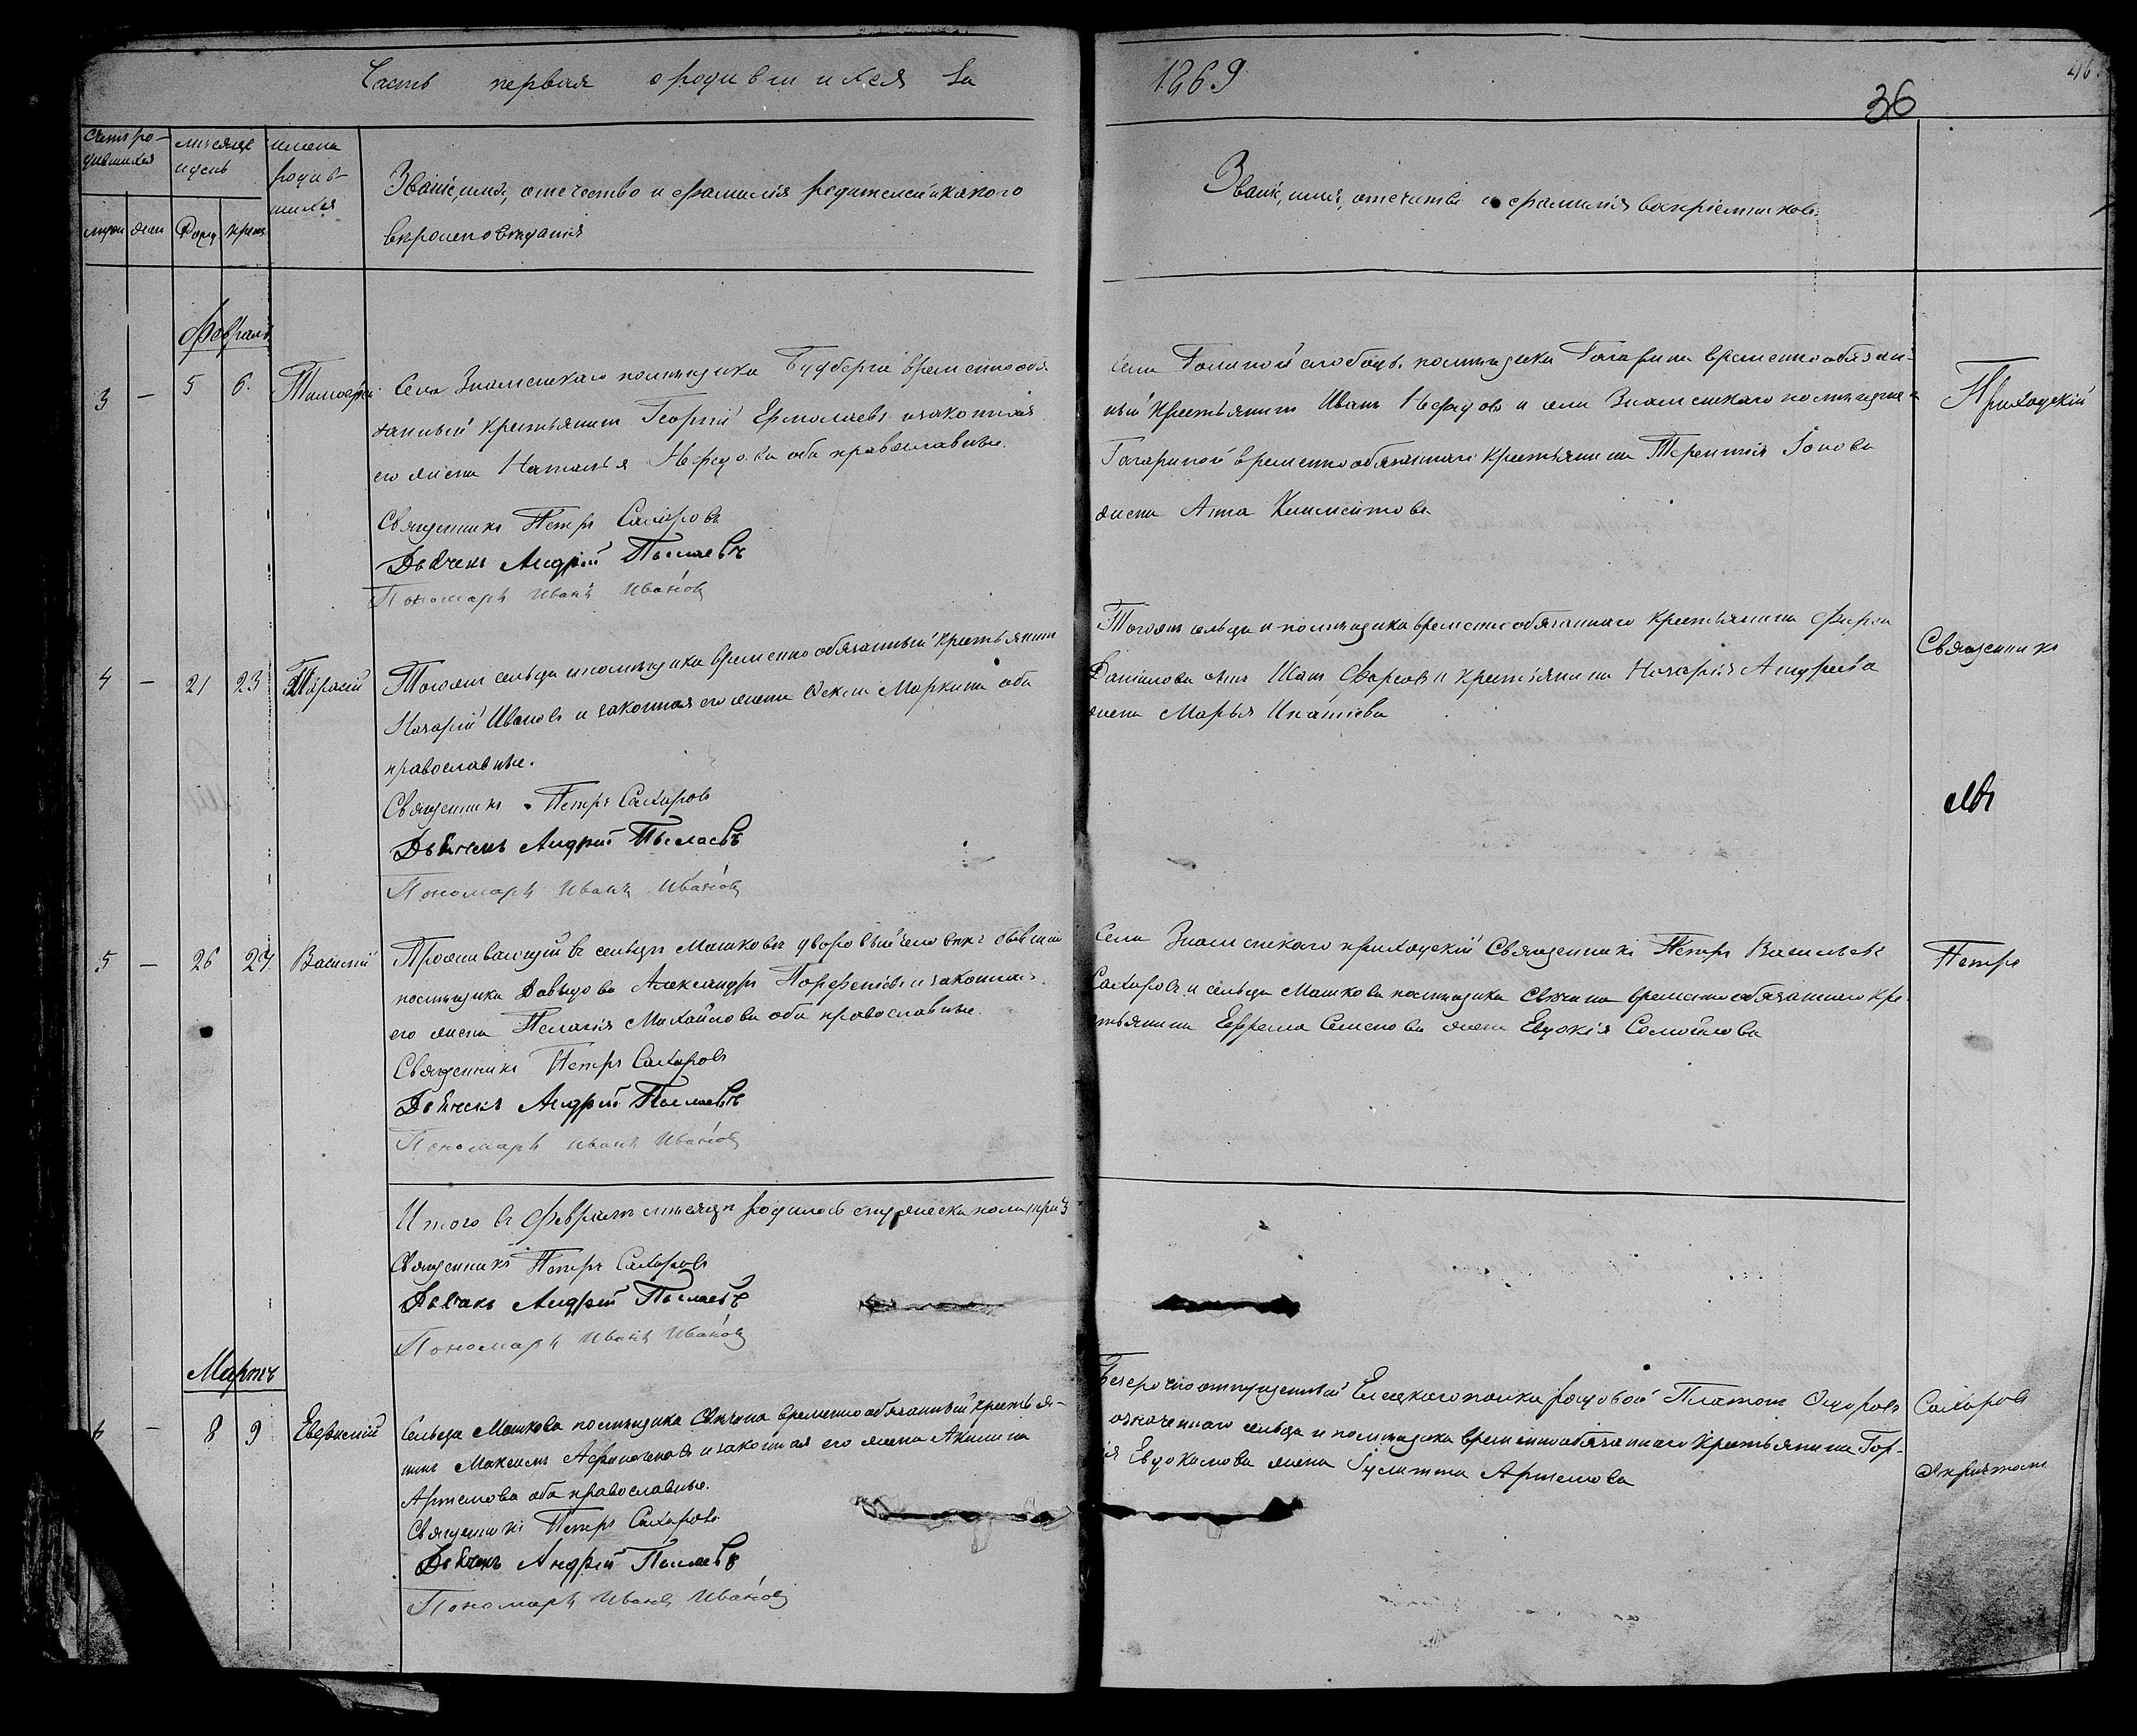 Часть первая о родившихся за
1869
36
46
Счетъ ро-
дившихся
месяцъ
и день
имена
родив-
шихся
Званіе, имя, отечество и фамилія родителей и какого
вероисповеданія
Званіе, имя, отечество и фамилія воспріемниковъ
муж жен Рожд. крещ.
Февраль
3 — 5 6. Тимофей
Села Знаменскаго помещика Будберга временнообя
занный крестьянинъ Георгій Ермолаевъ и законная
его жена Наталья Нефедова оба православные.
Священникъ Петръ Сахаровъ
Дьячекъ Андрей
Пономарь Иванъ Ивановъ
Села слободы помещика Гагарина временнообязан-
ный крестьянинъ Иванъ Нефедовъ и села Знаменскаго помещицы
Гагариной временнообязаннаго крестьянина Терентія
жена Анна Климентова
Приходскій
4 — 21 23 Тарасій
Тогоже сельца и помещика временно обязанный крестьянинъ
Назарій Ивановъ и законная его жена Фекла Маркина оба
православные.
Священникъ Петръ Сахаровъ
Дьячекъ Андрей
Пономарь Иванъ Ивановъ
Тогоже сельца и помещика временнообязаннаго крестьянина
Данилова сынъ и крестьянина Назарія Андреева
жена Марья Игнатіева
Священникъ
5 — 26 27. Василій
Проживающій въ сельце Машкове дворовый человекъ бывшій
помещика Давыдова Александръ Порфеніевъ и законная
его жена Пелагія Михайлова оба православные.
Священникъ Петръ Сахаровъ
Дьячекъ Андрей
Пономарь Иванъ Ивановъ
Села Знаменскаго приходскій Священникъ Петръ Васильевъ
Сахаровъ и сельца Машкова помещика Свечина временнообязаннаго кре-
стьянина Ефрема Семенова жена Евдокія Самойлова
Петръ
Итого въ Феврале месяце родилось мужеска пола три 3
Священникъ Петръ Сахаровъ
Дьячекъ Андрей
Пономарь Иванъ Ивановъ
Мартъ
— 8 9 Евфимій
Сельца Машкова помещика Свечина временнообязанный крестья-
нинъ Максимъ и законная его жена Акилина
Артемова оба православные.
Священникъ Петръ Сахаровъ
Дьячекъ Андрей
Пономарь Иванъ Ивановъ
Безсрочно отпущенный Елецкаго полка рядовой Платонъ Сидоровъ
означеннаго сельца и помещика временнообязаннаго крестьянина
Евдокимова жена Артемова
Сахаровъ
съ причтомъ